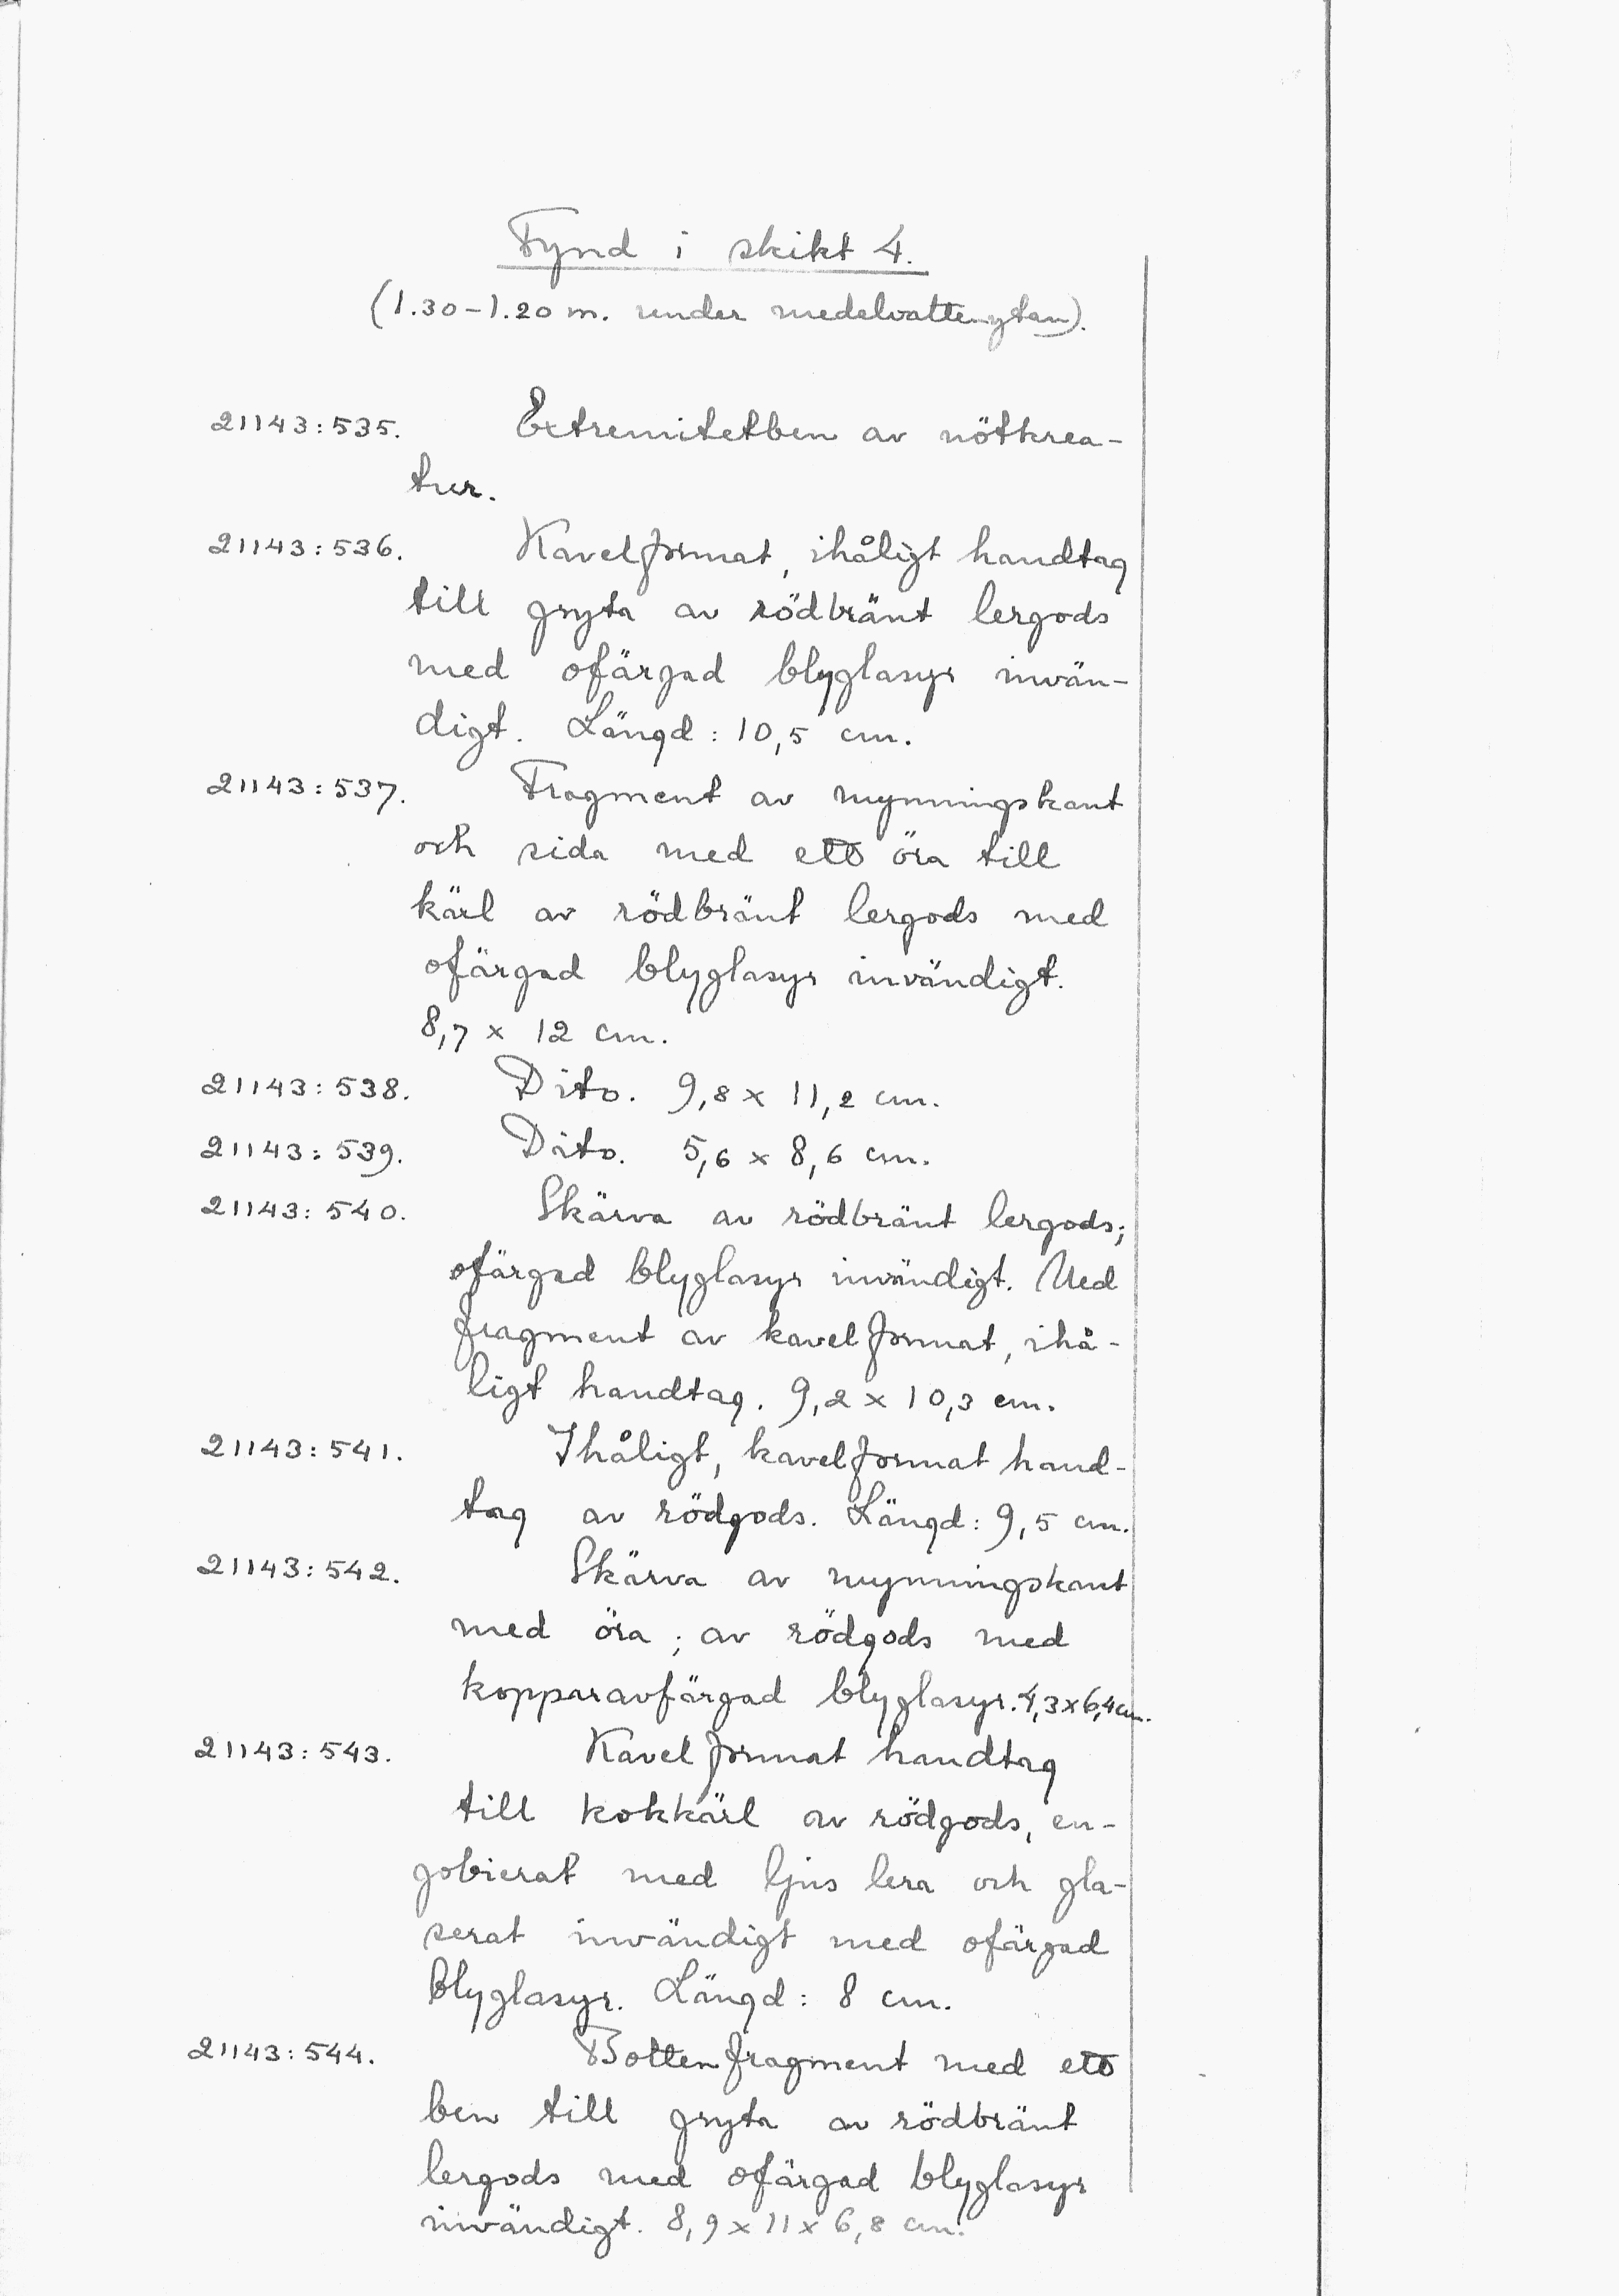 Fynd i skikt 4.
(1.30-1.20 m. under medelvattenytan).
21143:535. Extremitetben av nötkrea-
tur.
21143:536. Kavelformat, ihåligt handtag
till gryta av rödbränt lergods
med ofärgad blyglasyr invän-
digt. Längd: 10,5 cm.
21143:537. Fragment av mynningskant
och sida med ett öra till
kärl av rödbränt lergods med
ofärgad blyglasyr invändigt.
8,7 x 12 cm.
21143:538. Dito. 9,8 x 11,2 cm.
21143:539. Dito. 5,6 x 8,6 cm.
21143:540. Skärva av rödbränt lergods;
ofärgad blyglasyr invändigt. Med
fragment av kavelformat, ihå-
ligt handtag. 9,2 x 10,3 cm.
21143:541. Ihåligt, kavelformat hand-
tag av rödgods. Längd: 9,5 cm.
21143:542. Skärva av mynningskant
med öra; av rödgods med
kopparavfärgad blyglasyr. 4,3x6,4cm.
21143:543. Kavelformat handtag
till kokkärl av rödgods, en-
gobierat med ljus lera och gla-
serat invändigt med ofärgad
blyglasyr. Längd: 8 cm.
21143:544. Bottenfragment med ett
ben till gryta av rödbränt
lergods med ofärgad blyglasyr
invändigt. 8,9 x 11 x 6,8 cm.